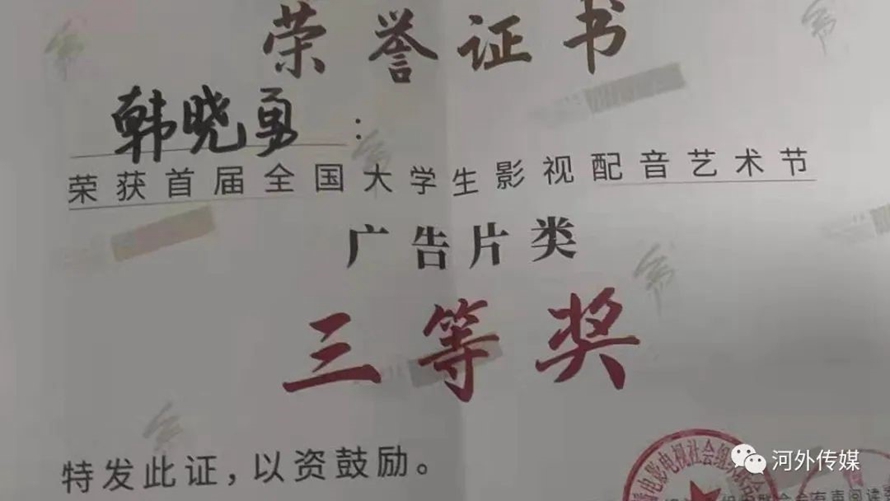 荣誉证书
韩晓勇：
荣获首届全国大学生影视配音艺术节
广告片类
三等奖
特发此证，以资鼓励。
电影电视社会组
河外传媒